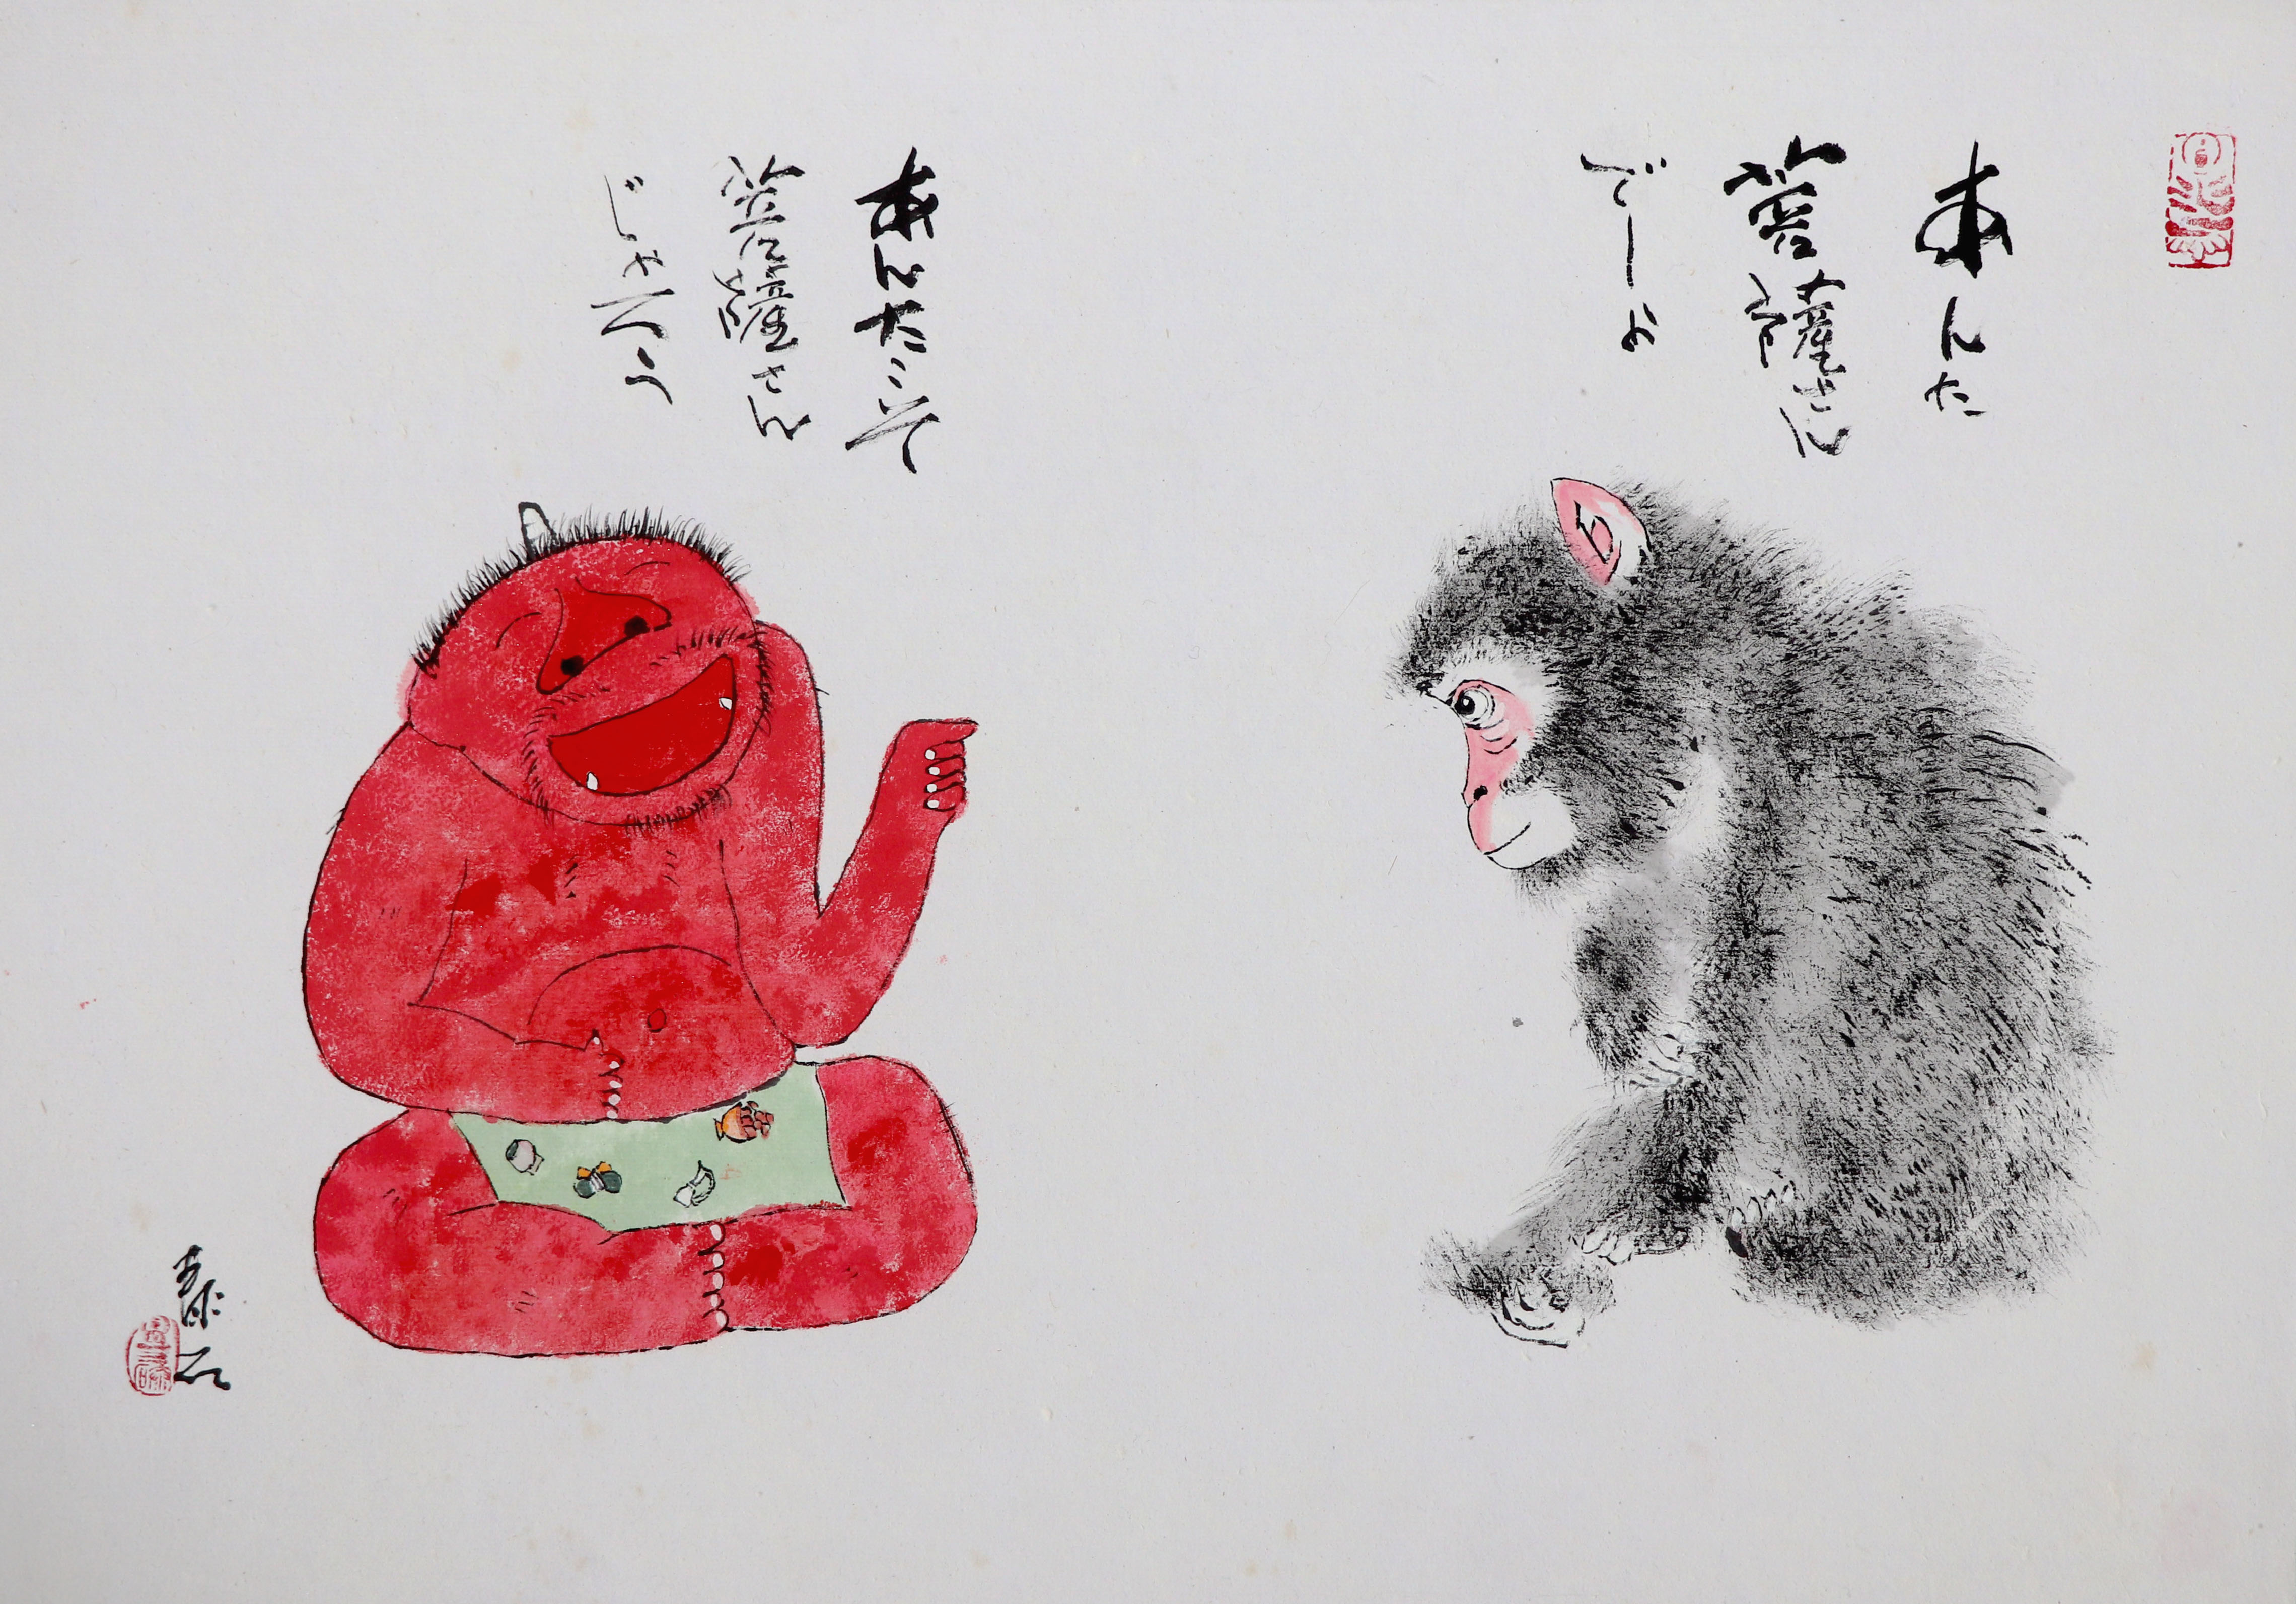 あんた
菩薩さん
でしょ
あんたこそ
菩薩さん
じゃろう